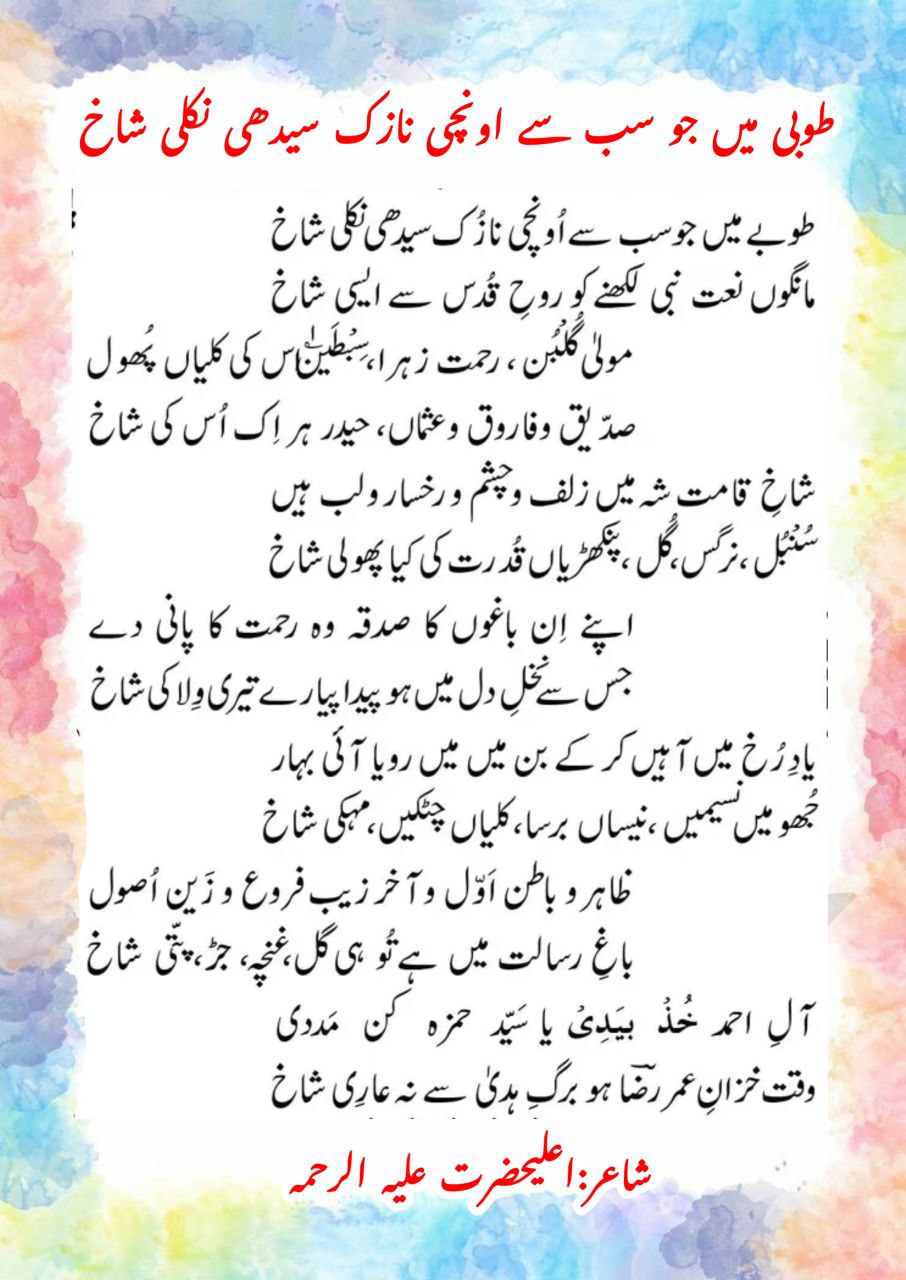 طوبی میں جو سب سے اونچی نازک سیدھی نکلی شاخ
طوبے میں جو سب سے اُونچی نازُک سیدھی نکلی شاخ
مانگوں نعت نبی لکھنے کو روحِ قُدس سے ایسی شاخ
مولیٰ گُلبُن ، رحمت زہرا، سِبْطَین اس کی کلیاں پُھول
صدّیق وفاروق وعثماں، حیدر ہر اِک اُس کی شاخ
شاخِ قامت شہ میں زلف وچشم ورخسار ولب ہیں
سُنْبُل ،نرگس،گُل ،پنکھڑیاں قُدرت کی کیا پھولی شاخ
اپنے اِن باغوں کا صدقہ وہ رحمت کا پانی دے
جس سے نخلِ دل میں ہو پیدا پیارے تیری وِلا کی شاخ
یادِ رُخ میں آہیں کر کے بن میں میں رویا آئی بہار
جُھومیں نسیمیں ،نیساں برسا،کلیاں چٹکیں،مہکی شاخ
ظاہر و باطن اَوّل و آخر زیب فروع و زَین اُصول
باغِ رسالت میں ہے تُو ہی گل،غنچہ، جڑ،پتّی شاخ
آلِ احمد خُذْ بِیَدِیْ یا سَیّد حمزہ کن مَددی
وقت خزانِ عمر رضؔا ہو برگِ ہدیٰ سے نہ عارِی شاخ
شاعر:اعلیحضرت علیہ الرحمہ